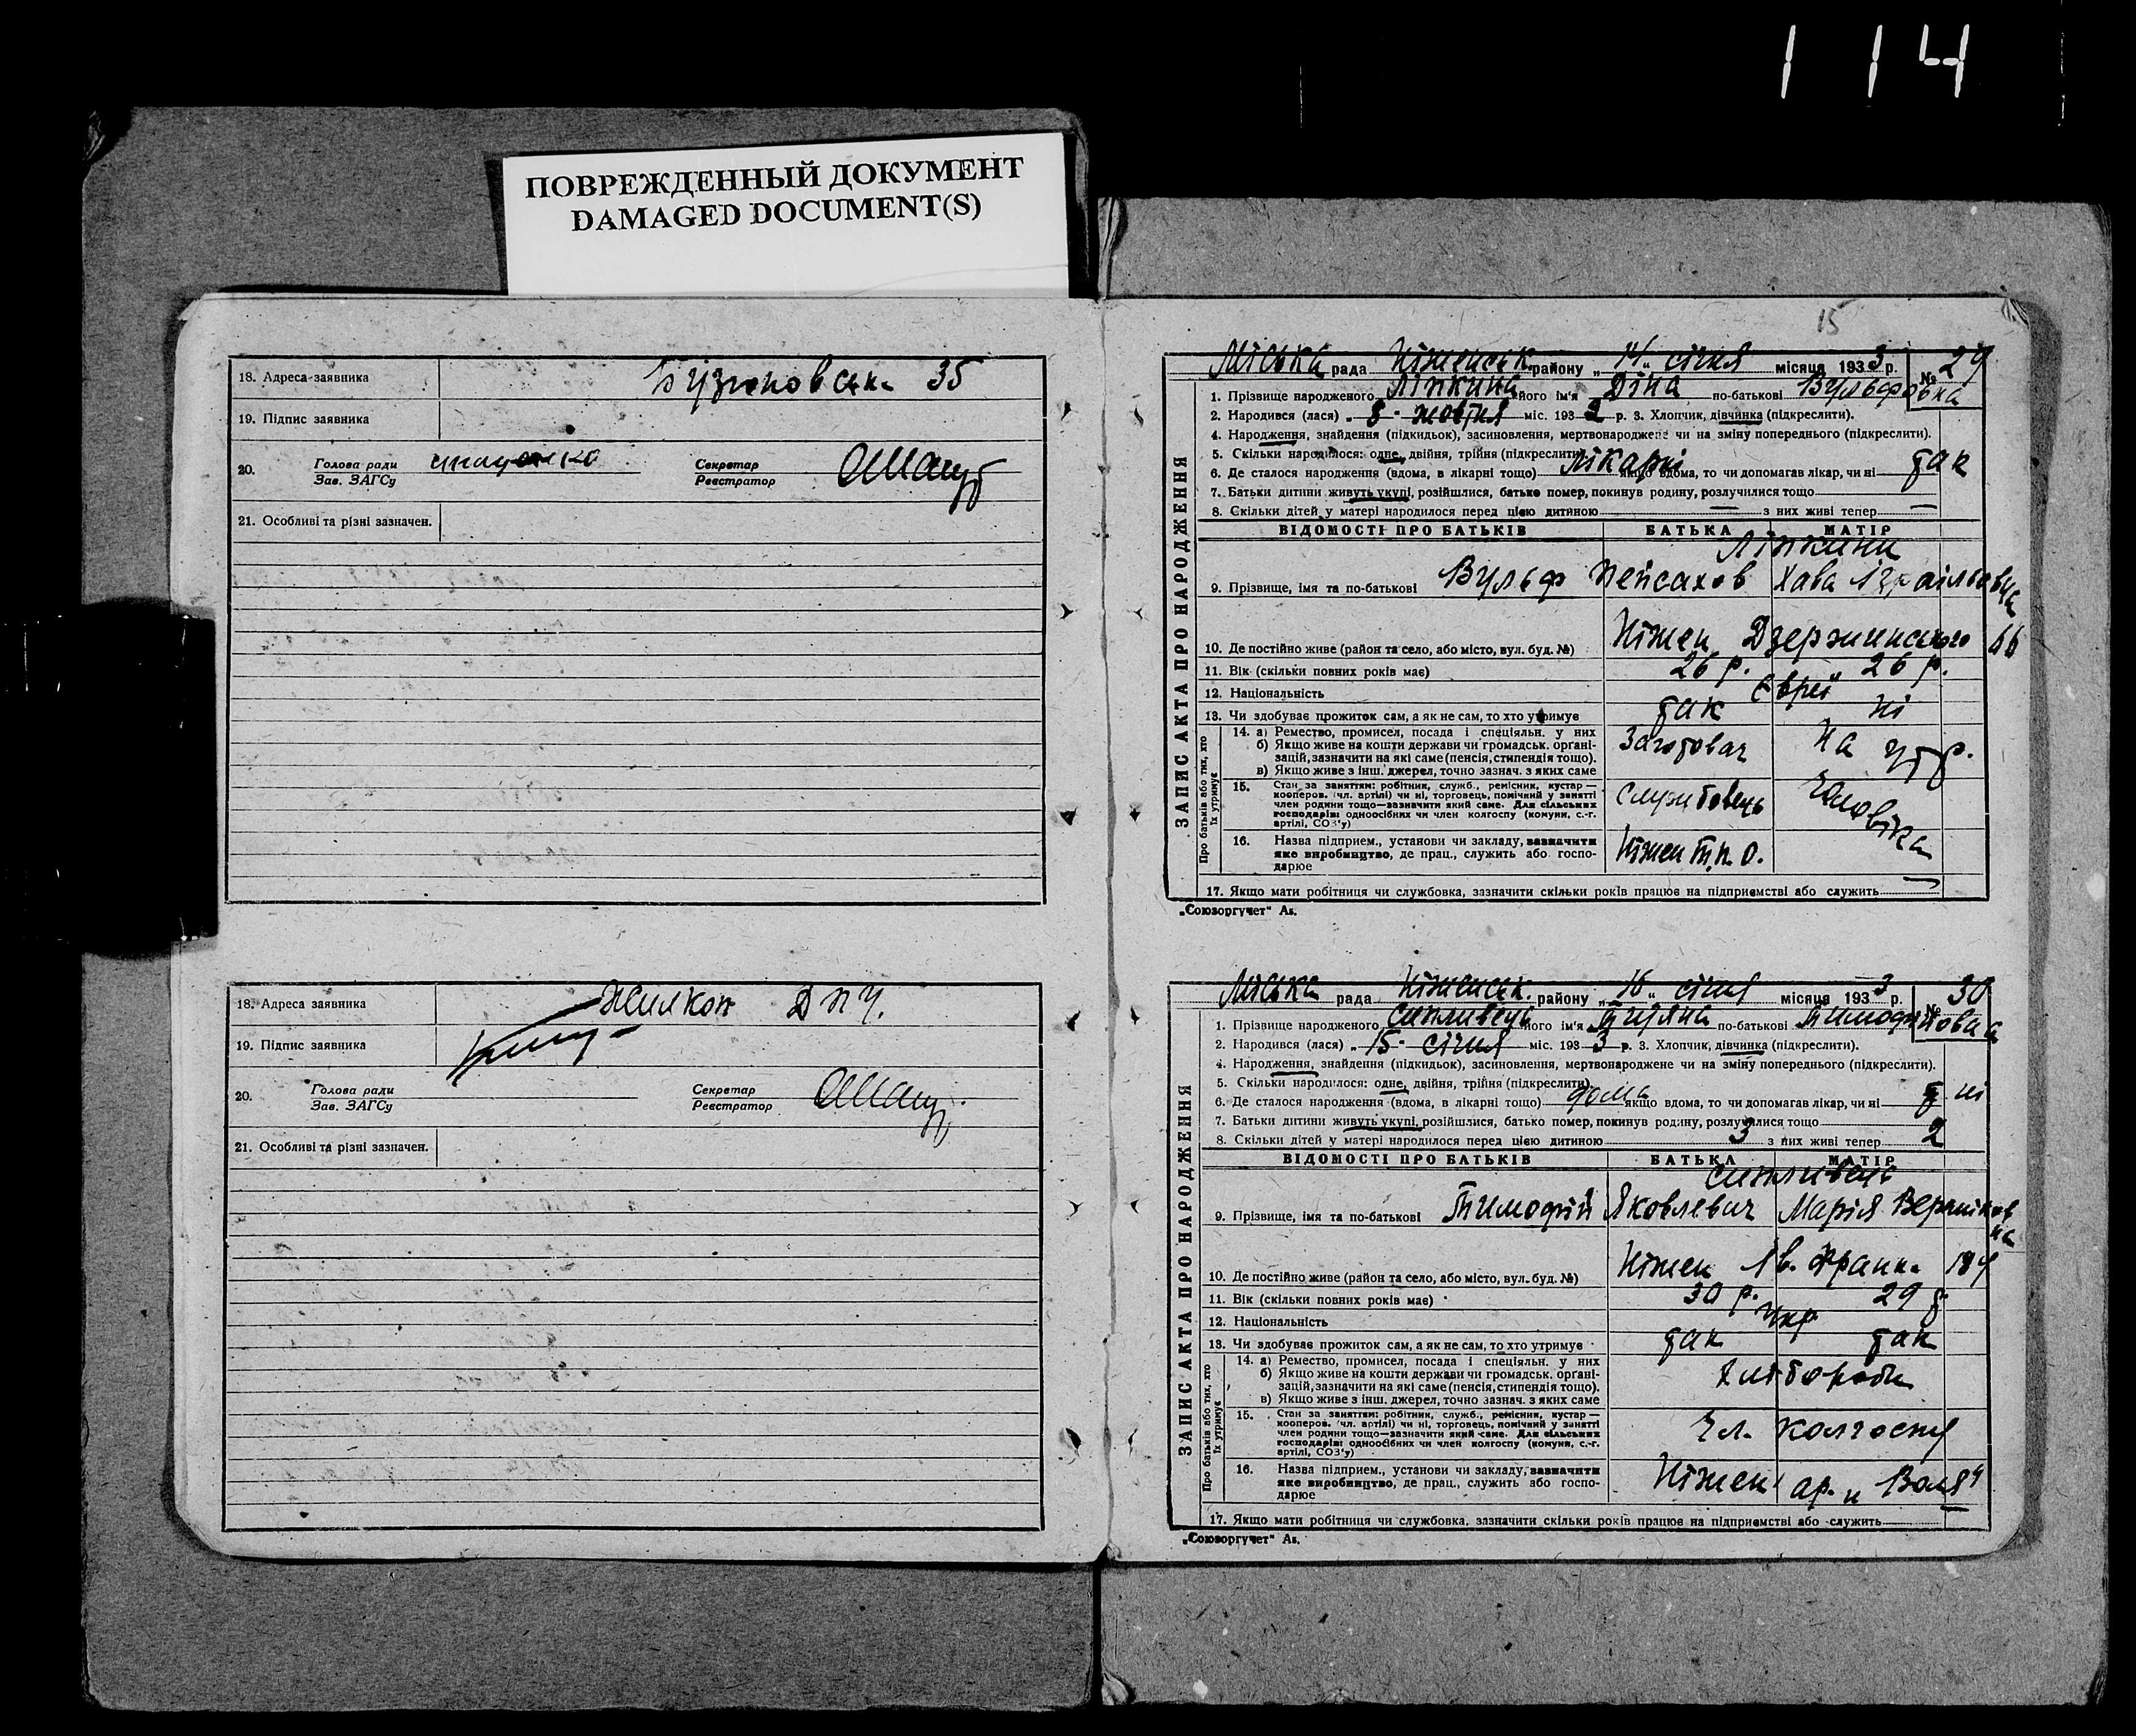 114
ПОВРЕЖДЕННЫЙ ДОКУМЕНТ
DAMAGED DOCUMENT(S)
18. Адреса заявника 35
19. Підпис заявника
20. Голова ради Секретар
Зав. ЗАГСу Реєстратор
21. Особливі та різні зазначен.
18. Адреса заявника
19. Підпис заявника
20. Голова ради Секретар
Зав. ЗАГСу Реєстратор
21. Особливі та різні зазначен.
15
ЗАПИС АКТА ПРО НАРОДЖЕННЯ
Міська рада Ніженськ. району „14" січня місяця 1933 р. № 29
1. Прізвище народженого Ліпкина його ім'я Діна по-батькові Вульфовна
2. Народився (лася) 8 жовтня міс. 1932 р. 3. Хлопчик, дівчинка (підкреслити).
4. Народження, знайдення (підкидьок), засиновлення, мертвонароджене чи на зміну попереднього (підкреслити).
5. Скільки народилося: одне, двійня, трійня (підкреслити)
6. Де сталося народження (вдома, в лікарні тощо) лікарні якщо вдома, то чи допомагав лікар, чи ні так
7. Батьки дитини живуть укупі, розійшлися, батько помер, покинув родину, розлучилися тощо
8. Скільки дітей у матері народилося перед цією дитиною — з них живі тепер —
ВІДОМОСТІ ПРО БАТЬКІВ БАТЬКА МАТІР
Ліпкини
9. Прізвище, імя та по-батькові Вульф Пейсахов Хава Ізраільовна
10. Де постійно живе (район та село, або місто, вул. буд. №) Ніжен Дзержинського 66
11. Вік (скільки повних років має) 26 р. 26 р.
12. Національність Євреї
13. Чи здобуває прожиток сам, а як не сам, то хто утримує так ні
Про батьків або тих, хто їх утримує
14. а) Ремество, промисел, посада і спеціяльн. у них
б) Якщо живе на кошти держави чи громадськ. орґані-
зацій, зазначити на які саме (пенсія, стипендія тощо).
в) Якщо живе з інш. джерел, точно зазнач. з яких саме
Заготовач На утр. Чоловіка
15. Стан за заняттям: робітник, служб., ремісник, кустар —
кооперов. (чл. артілі) чи ні, торговець, помічний у занятті
член родини тощо—зазначити який саме. Для сільських
господарів: одноосібних чи член колгоспу (комуни, с.-г.
артілі, СОЗ'у)
Службовець
16. Назва підприєм., установи чи закладу, зазначити
яке виробництво, де прац., служить або госпо-
дарює
Ніжен т.п.о.
17. Якщо мати робітниця чи службовка, зазначити скільки років працює на підприємстві або служить —
„Союзоргучет" Ак.
ЗАПИС АКТА ПРО НАРОДЖЕННЯ
Міська рада Ніженськ. району „16" січня місяця 1933 р. № 30
1. Прізвище народженого його ім'я по-батькові
2. Народився (лася) 15 січня міс. 1933 р. 3. Хлопчик, дівчинка (підкреслити).
4. Народження, знайдення (підкидьок), засиновлення, мертвонароджене чи на зміну попереднього (підкреслити).
5. Скільки народилося: одне, двійня, трійня (підкреслити)
6. Де сталося народження (вдома, в лікарні тощо) дома якщо вдома, то чи допомагав лікар, чи ні ні
7. Батьки дитини живуть укупі, розійшлися, батько помер, покинув родину, розлучилися тощо
8. Скільки дітей у матері народилося перед цією дитиною 3 з них живі тепер 2
ВІДОМОСТІ ПРО БАТЬКІВ БАТЬКА МАТІР
9. Прізвище, імя та по-батькові Тимофій Яковлевич Марія
10. Де постійно живе (район та село, або місто, вул. буд. №) Ніжен Ів. Франк.
11. Вік (скільки повних років має) 30 р. 29 р.
12. Національність Укр
13. Чи здобуває прожиток сам, а як не сам, то хто утримує так так
Про батьків або тих, хто їх утримує
14. а) Ремество, промисел, посада і спеціяльн. у них
б) Якщо живе на кошти держави чи громадськ. орґані-
зацій, зазначити на які саме (пенсія, стипендія тощо).
в) Якщо живе з інш. джерел, точно зазнач. з яких саме
Хлібороби
15. Стан за заняттям: робітник, служб., ремісник, кустар —
кооперов. (чл. артілі) чи ні, торговець, помічний у занятті
член родини тощо—зазначити який саме. Для сільських
господарів: одноосібних чи член колгоспу (комуни, с.-г.
артілі, СОЗ'у)
Чл. колгоспу
16. Назва підприєм., установи чи закладу, зазначити
яке виробництво, де прац., служить або госпо-
дарює
Ніжен ар. „Воля"
17. Якщо мати робітниця чи службовка, зазначити скільки років працює на підприємстві або служить —
„Союзоргучет" Ак.